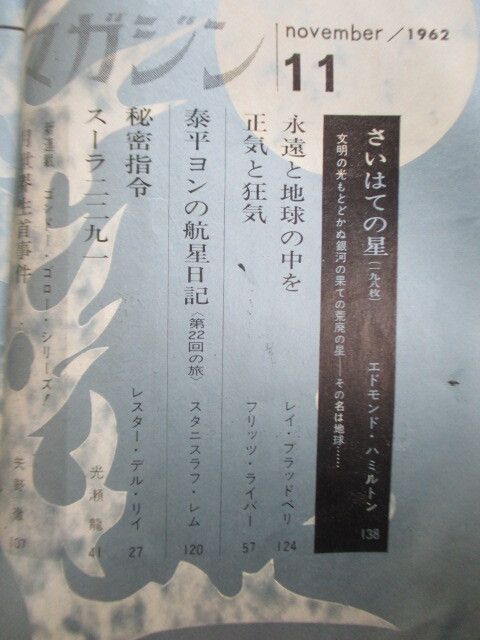 マガジン
november/1962
11
さいはての星(一九八枚)
エドモンド・ハミルトン 138
文明の光もとどかぬ銀河の果ての荒廃の星——その名は地球……
永遠と地球の中を
レイ・ブラッドベリ 124
正気と狂気
フリッツ・ライバー 57
泰平ヨンの航星日記〈第22回の旅〉
スタニスラフ・レム 120
秘密指令
レスター・デル・リイ 27
スーラ二二九一
光瀬龍 41
新連載 コンドー・ゴロー・シリーズ!
月世界生首事件
矢野徹